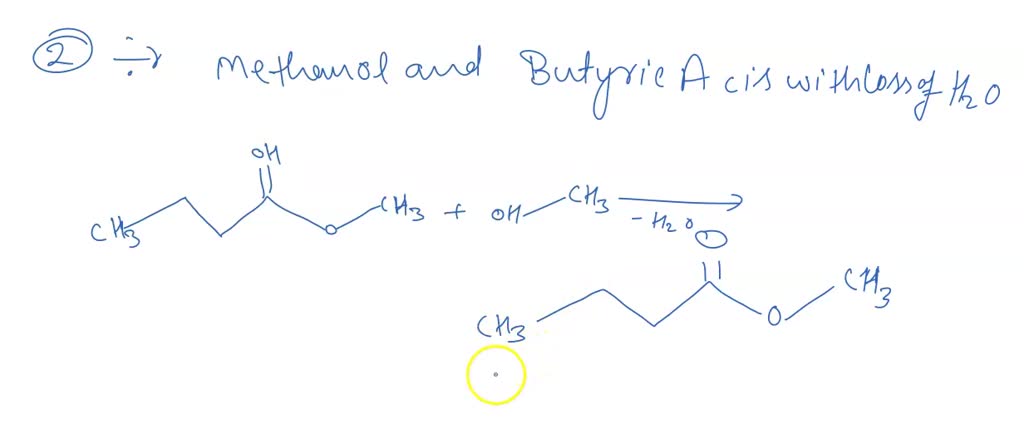 2 ÷ Methanol and Butyric Acis with loss of H2O
OH
CH3 O CH3 + OH CH3
- H2O
O
CH3
O
CH3